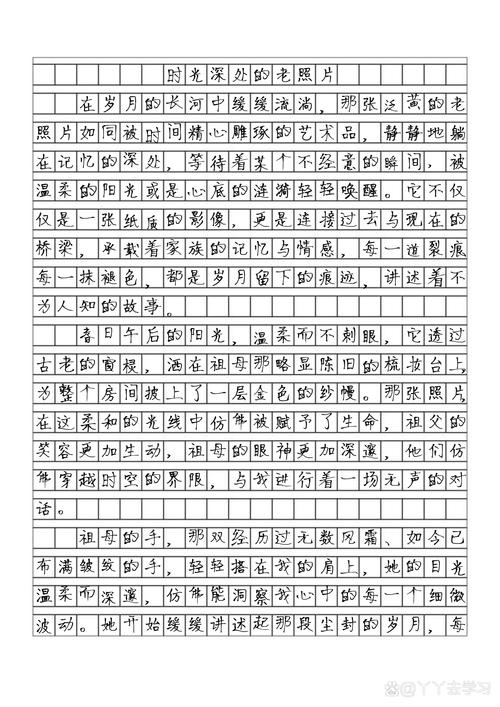 时光深处的老照片
在岁月的长河中缓缓流淌，那张泛黄的老
照片如同被时间精心雕琢的艺术品，静静地躺
在记忆的深处，等待着某个不经意的瞬间，被
温柔的阳光或是心底的涟漪轻轻唤醒。它不仅
仅是一张纸质的影像，更是连接过去与现在的
桥梁，承载着家族的记忆与情感，每一道裂痕
每一抹褪色，都是岁月留下的痕迹，讲述着不
为人知的故事。
春日午后的阳光，温柔而不刺眼，它透过
古老的窗棂，洒在祖母那略显陈旧的梳妆台上，
为整个房间披上了一层金色的纱幔。那张照片，
在这柔和的光线中仿佛被赋予了生命，祖父的
笑容更加生动，祖母的眼神更加深邃，他们仿
佛穿越时空的界限，与我进行着一场无声的对
话。
祖母的手，那双经历过无数风霜、如今已
布满皱纹的手，轻轻搭在我的肩上，她的目光
温柔而深邃，仿佛能洞察我心中的每一个细微
波动。她开始缓缓讲述起那段尘封的岁月，每
@丫丫去学习